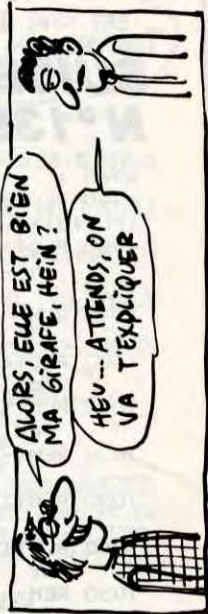 ALORS, ELLE EST BIEN
MA GIRAFE, HEIN ?
HEU... ATTENDS, ON
VA T'EXPLIQUER